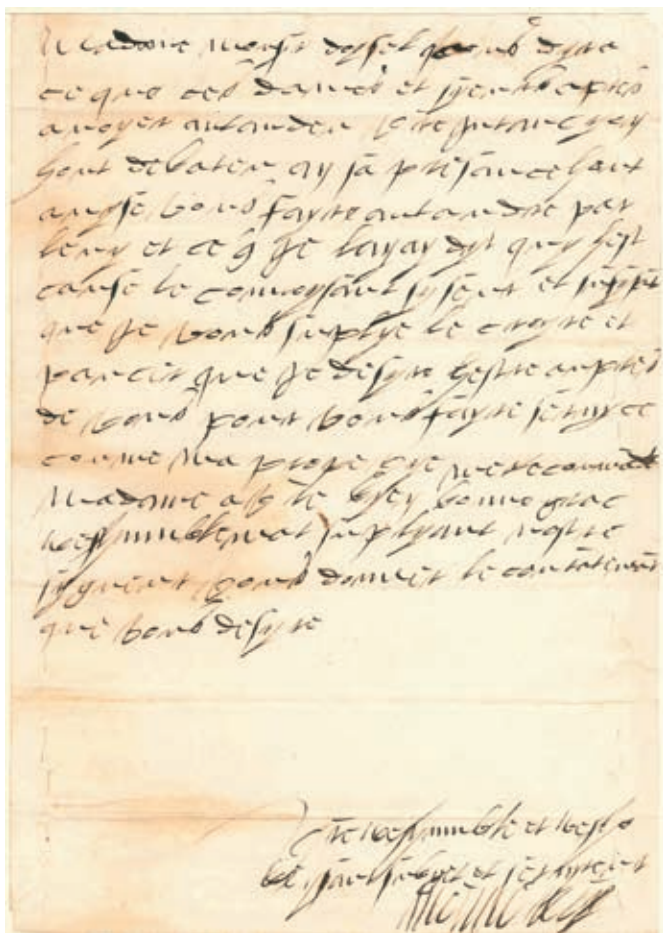 Madame monsr doysel quy vous dyra
ce que ces dames et apres
avoyer autandu
hont debaten an sa presance hont
avyse vous fayre autandre par
leuy et ce q je layay dyt quy hest
cause le connoysant sy seur et
que je vous suplye le croyre et
pancer que je desyre hestre aupres
de vous pour vous fayre servyce
comme ma propre vye me recomande
Madame a bonne grac
tres humblemant suplyant nostre
sygneur vous donner le contantemant
que vous desyre
tres humble et tres ho
beysant subget et servyteur